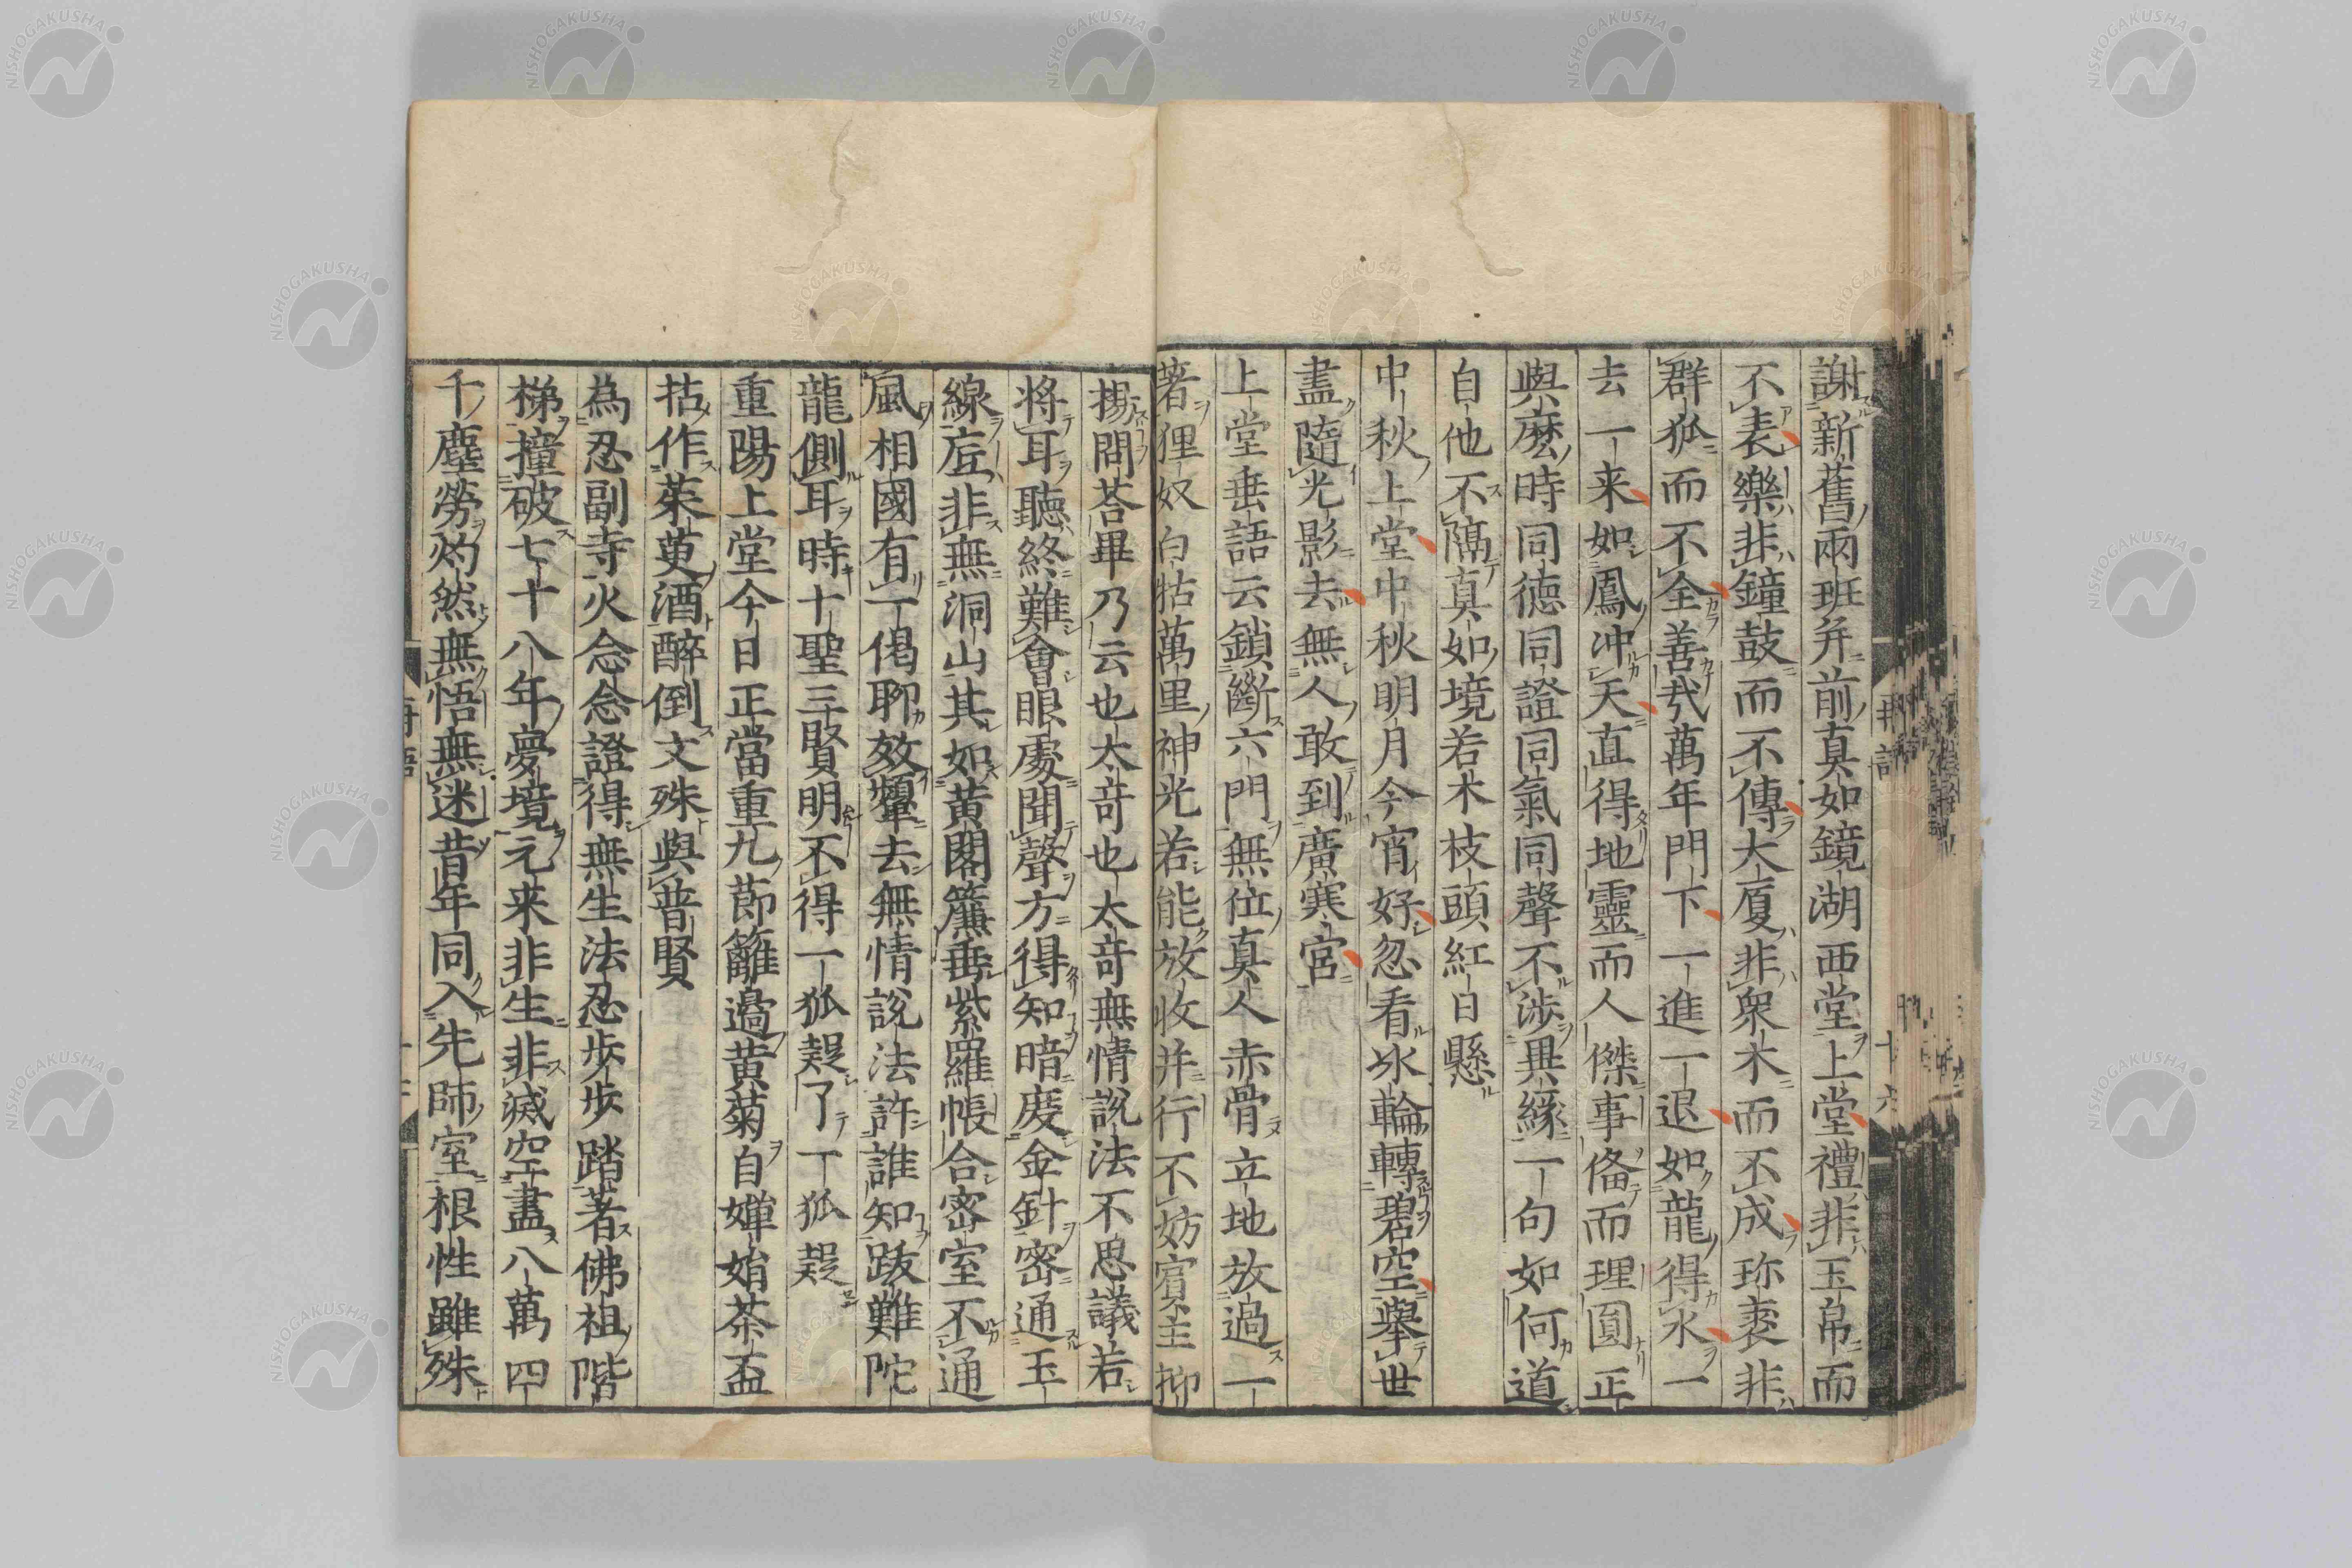 謝新舊兩班并前真如鏡湖西堂上堂禮非玉帛而
不表樂非鐘鼓而不傳大厦非衆木而不成珎裘非
群狐而不全善㢤萬年門下一進一退如龍得水一
去一来如鳳冲天直得地靈而人傑事俻而理圓正
與麽時同徳同證同氣同聲不渉異縁一句如何道
自他不隔真如境若木枝頭紅日懸
中秋上堂中秋明月今宵好忽看氷輪轉碧空舉世
盡隨光影去無人敢到廣寒宮
上堂垂語云鎖斷六門無位真人赤骨立地放過一
著狸奴白牯萬里神光若能放收并行不妨賓主抑
揚問荅畢乃云也太竒也太竒無情説法不思議若
将耳聴終難會眼處聞聲方得知暗度金針密通玉
線㡳非無洞山其如黄閣簾垂紫羅帳合密室不通
風相國有一偈聊效顰去無情説法許誰知跋難陀
龍側耳時十聖三賢明不得一狐疑了一狐疑
重陽上堂今日正當重九節籬邉黄菊自嬋娟茶盃
拈作茱萸酒醉倒文殊與普賢
為忍副寺火念念證得無生法忍歩歩踏著佛祖階
梯撞破七十八年夢境元来非生非滅空盡八萬四
千塵勞灼然無悟無迷昔年同入先師室根性雖殊